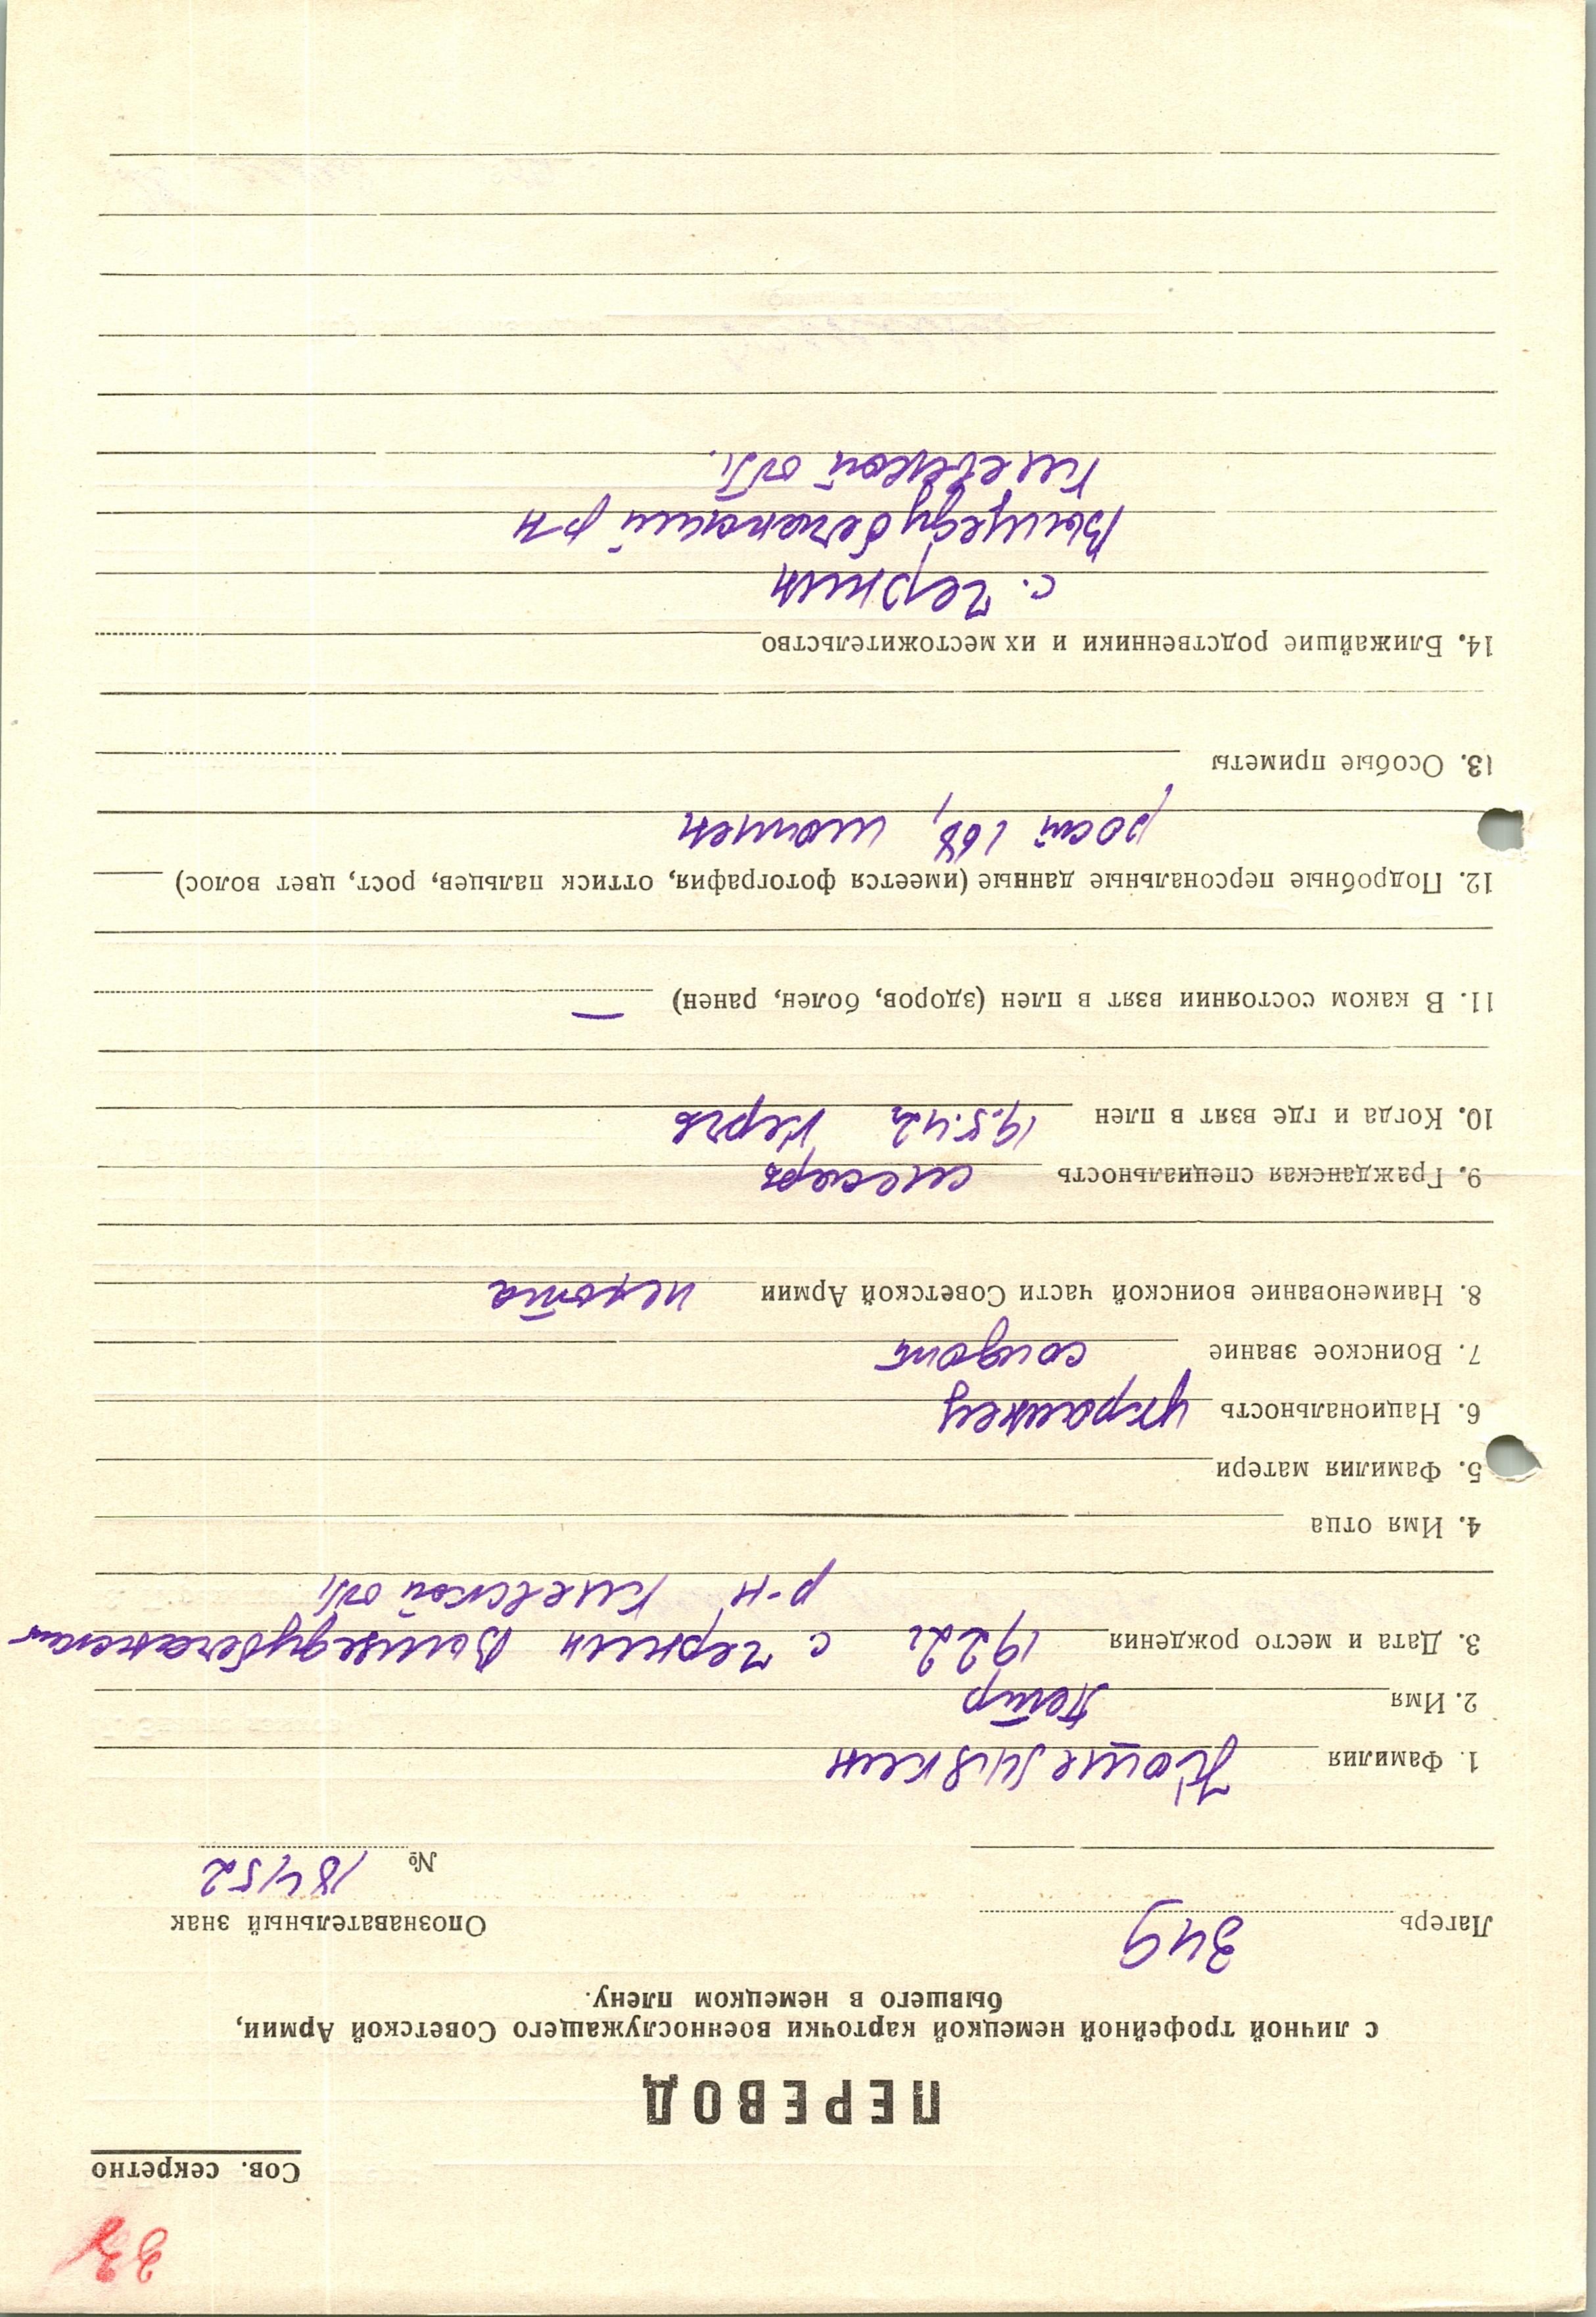 Сов. секретно
ПЕРЕВОД
с личной трофейной немецкой карточки военнослужащего Советской Армии,
бывшего в немецком плену.
Лагерь 349 Опознавательный знак
№ 18452
1. Фамилия
2. Имя Петр
3. Дата и место рождения 1922г с. Чернин
р-н Киевской обл
4. Имя отца
5. Фамилия матери
6. Национальность украинец
7. Воинское звание солдат
8. Наименование воинской части Советской Армии пехота
9. Гражданская специальность слесарь
10. Когда и где взят в плен 19.5.42г Керчь
11. В каком состоянии взят в плен (здоров, болен, ранен) —
12. Подробные персональные данные (имеется фотография, оттиск пальцев, рост, цвет волос)
рост 168, шатен
13. Особые приметы
14. Ближайшие родственники и их местожительство
с. Чернин
р-н
Киевской обл.